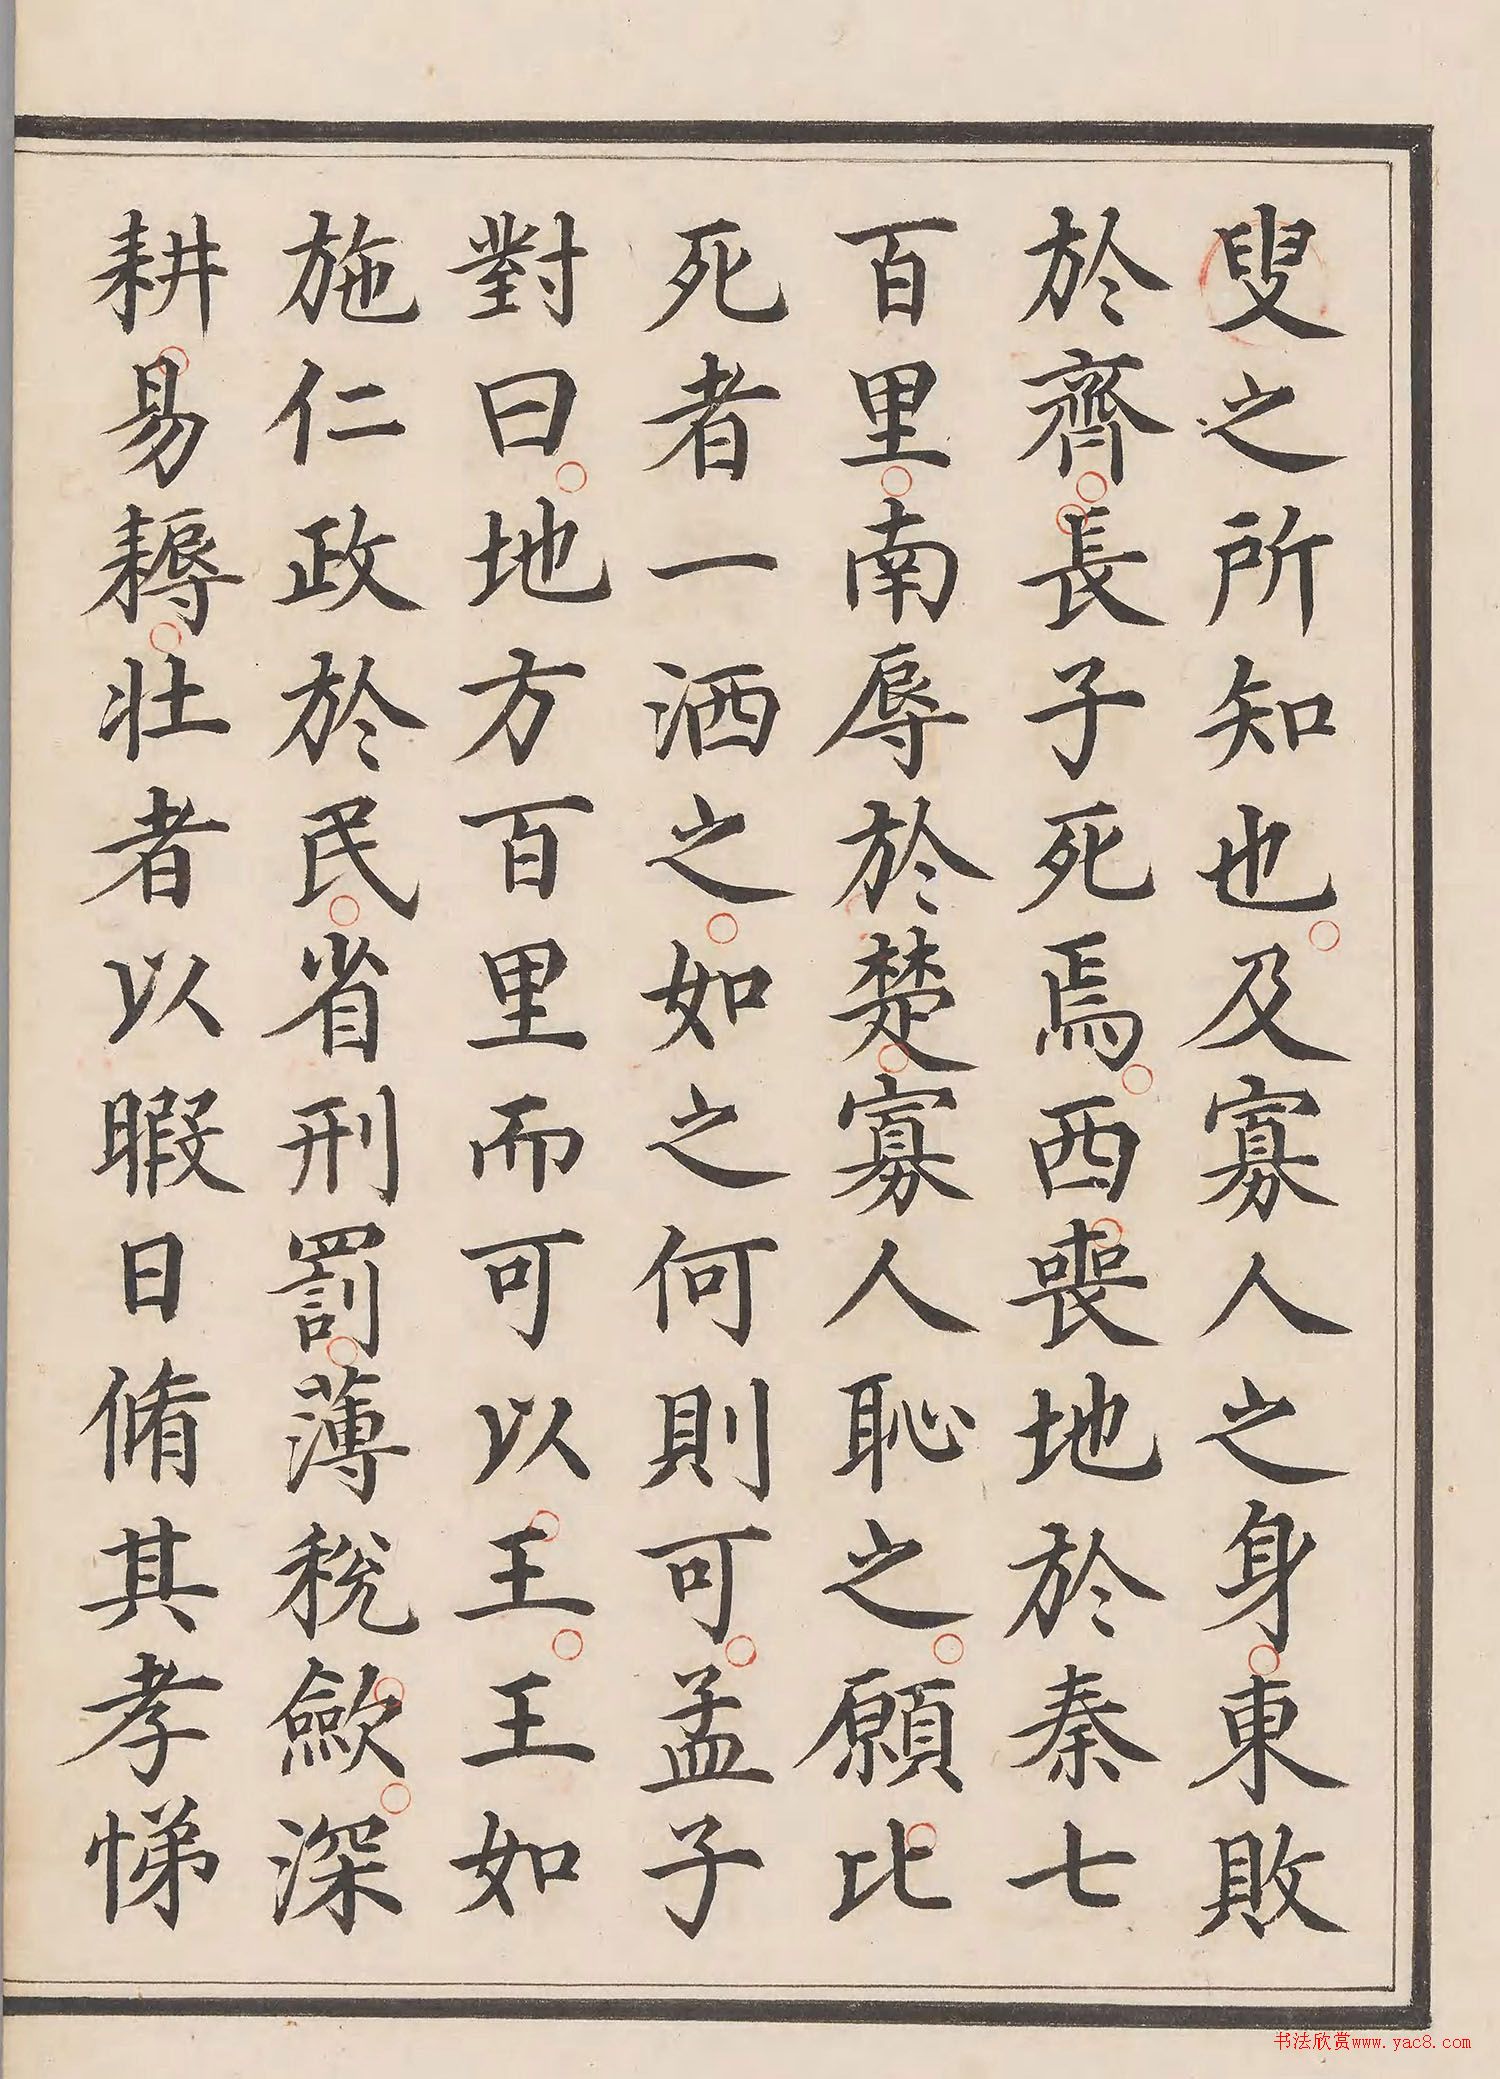 叟之所知也及寡人之身東敗
於齊長子死焉西喪地於秦七
百里南辱於楚寡人恥之願比
死者一洒之如之何則可孟子
對曰地方百里而可以王王如
施仁政於民省刑罰薄稅歛深
耕易耨壯者以暇日脩其孝悌
书法欣赏www.yac8.com